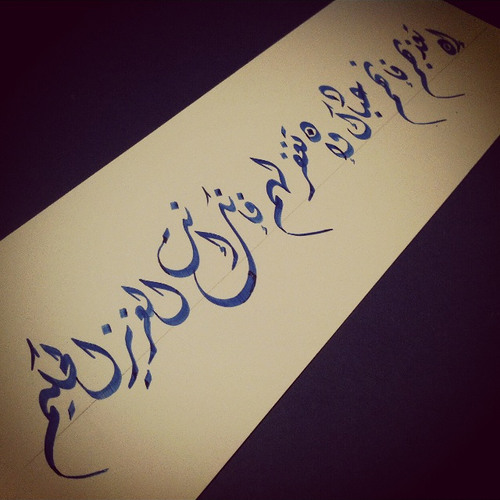 إن تعذبهم فإنهم عبادك وإن تغفر لهم فإنك أنت العزيز الحكيم